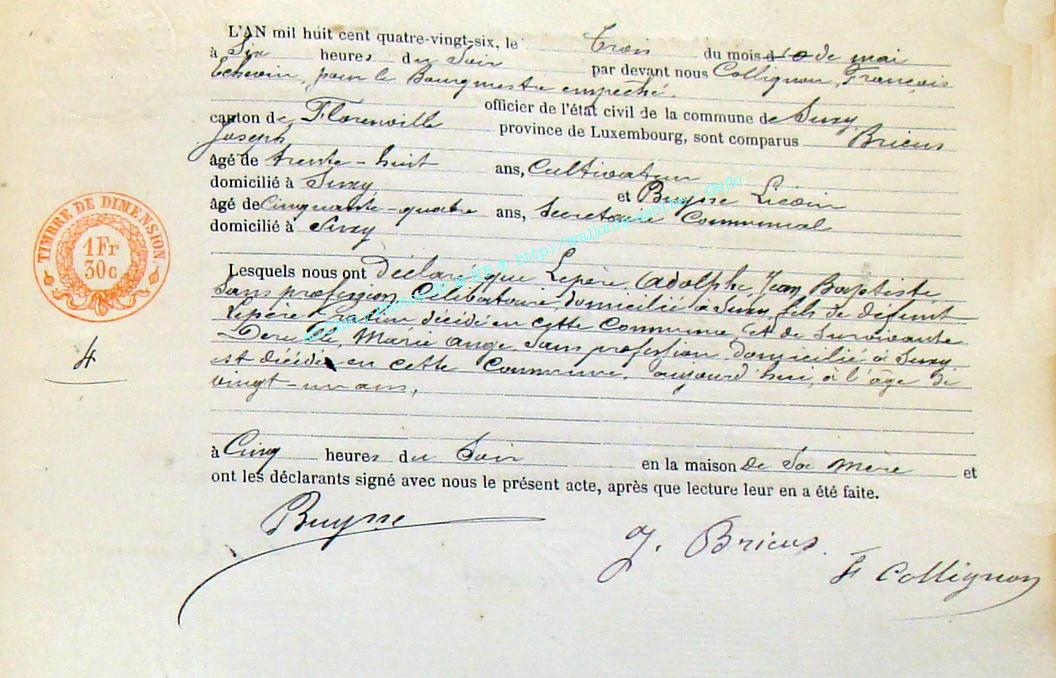 L'AN mil huit cent quatre-vingt-six, le Trois du mois de mai
à Six heures du Soir par devant nous Collignon, François
Echevin, pour le Bourgmestre empêché.
officier de l'état civil de la commune de Suxy
canton de Florenville province de Luxembourg, sont comparus Bricus
Joseph
âgé de trente-huit ans, Cultivateur
domicilié à Suxy et Buysse
âgé de Cinquante-quatre ans, Secrétaire Communal
domicilié à Suxy
Lesquels nous ont Déclaré que Lepère, Adolphe, Jean Baptiste
Sans profession, Célibataire, domicilié à Suxy, fils de défunt
Lepère décédé en cette Commune, et de Survivante
Marie Ange, Sans profession domicilié à Suxy
est décédé en cette Commune, aujourd'hui, à l'âge de
vingt-un ans,
à Cinq heures du Soir en la maison de Sa mère et
ont les déclarants signé avec nous le présent acte, après que lecture leur en a été faite.
Buysse
J. Bricus.
F Collignon
TIMBRE DE DIMENSION
1 Fr
30c
4